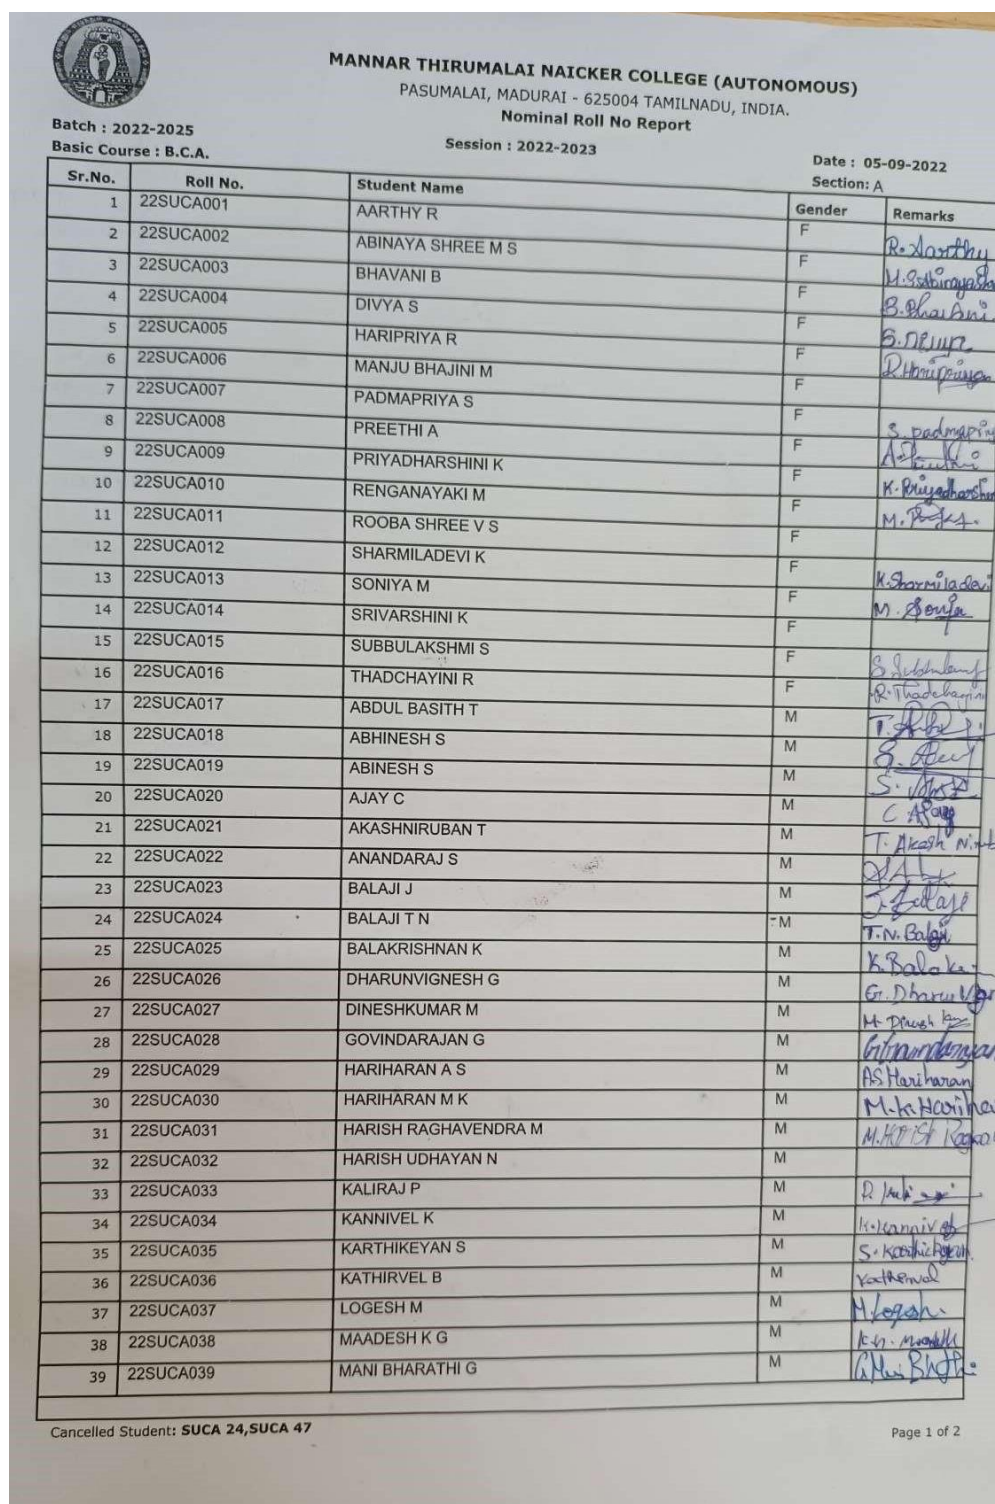 MANNAR THIRUMALAI NAICKER COLLEGE (AUTONOMOUS)
PASUMALAI, MADURAI - 625004 TAMILNADU, INDIA.
Nominal Roll No Report
Batch : 2022-2025
Session : 2022-2023
Date : 05-09-2022
Basic Course : B.C.A.
Section: A
Sr.No. Roll No. Student Name Gender Remarks
1 22SUCA001 AARTHY R F R. Aarthy
2 22SUCA002 ABINAYA SHREE M S F
3 22SUCA003 BHAVANI B F
4 22SUCA004 DIVYA S F
5 22SUCA005 HARIPRIYA R F R. Haripriya
6 22SUCA006 MANJU BHAJINI M F
7 22SUCA007 PADMAPRIYA S F S. padmapriy
8 22SUCA008 PREETHI A F
9 22SUCA009 PRIYADHARSHINI K F K. Priyadharshin
10 22SUCA010 RENGANAYAKI M F
11 22SUCA011 ROOBA SHREE V S F
12 22SUCA012 SHARMILADEVI K F K. Sharmiladevi
13 22SUCA013 SONIYA M F M. Soniya
14 22SUCA014 SRIVARSHINI K F
15 22SUCA015 SUBBULAKSHMI S F
16 22SUCA016 THADCHAYINI R F R. Thadchayini
17 22SUCA017 ABDUL BASITH T M
18 22SUCA018 ABHINESH S M
19 22SUCA019 ABINESH S M
20 22SUCA020 AJAY C M C Ajay
21 22SUCA021 AKASHNIRUBAN T M T. Akash
22 22SUCA022 ANANDARAJ S M
23 22SUCA023 BALAJI J M J. Balaji
24 22SUCA024 BALAJI T N M T.N. Balaji
25 22SUCA025 BALAKRISHNAN K M
26 22SUCA026 DHARUNVIGNESH G M
27 22SUCA027 DINESHKUMAR M M
28 22SUCA028 GOVINDARAJAN G M
29 22SUCA029 HARIHARAN A S M AS Hariharan
30 22SUCA030 HARIHARAN M K M M.K. Hariha
31 22SUCA031 HARISH RAGHAVENDRA M M
32 22SUCA032 HARISH UDHAYAN N M
33 22SUCA033 KALIRAJ P M
34 22SUCA034 KANNIVEL K M K. Kannivel
35 22SUCA035 KARTHIKEYAN S M
36 22SUCA036 KATHIRVEL B M
37 22SUCA037 LOGESH M M M. Logesh.
38 22SUCA038 MAADESH K G M
39 22SUCA039 MANI BHARATHI G M
Cancelled Student: SUCA 24,SUCA 47
Page 1 of 2